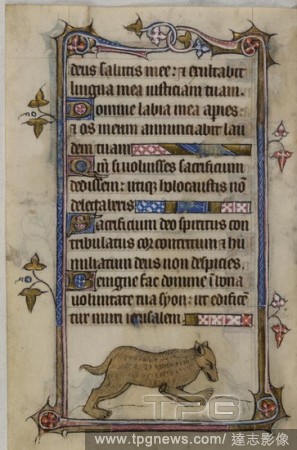 deus salutis mee: et exultabit
lingua mea iusticiam tuam.
Domine labia mea aperies:
et os meum annunciabit lau
dem tuam
Qm si voluisses sacrificium
dedissem: utiq; holocaustis nō
delectaberis
Sacrificium deo spiritus con
tribulatus cor contritum et hu
miliatum deus non despicies.
Benigne fac domine ī bona
voluntate tua syon: ut edificē
tur muri ierusalem
TPG
www.tpgnews.com/ 達志影像